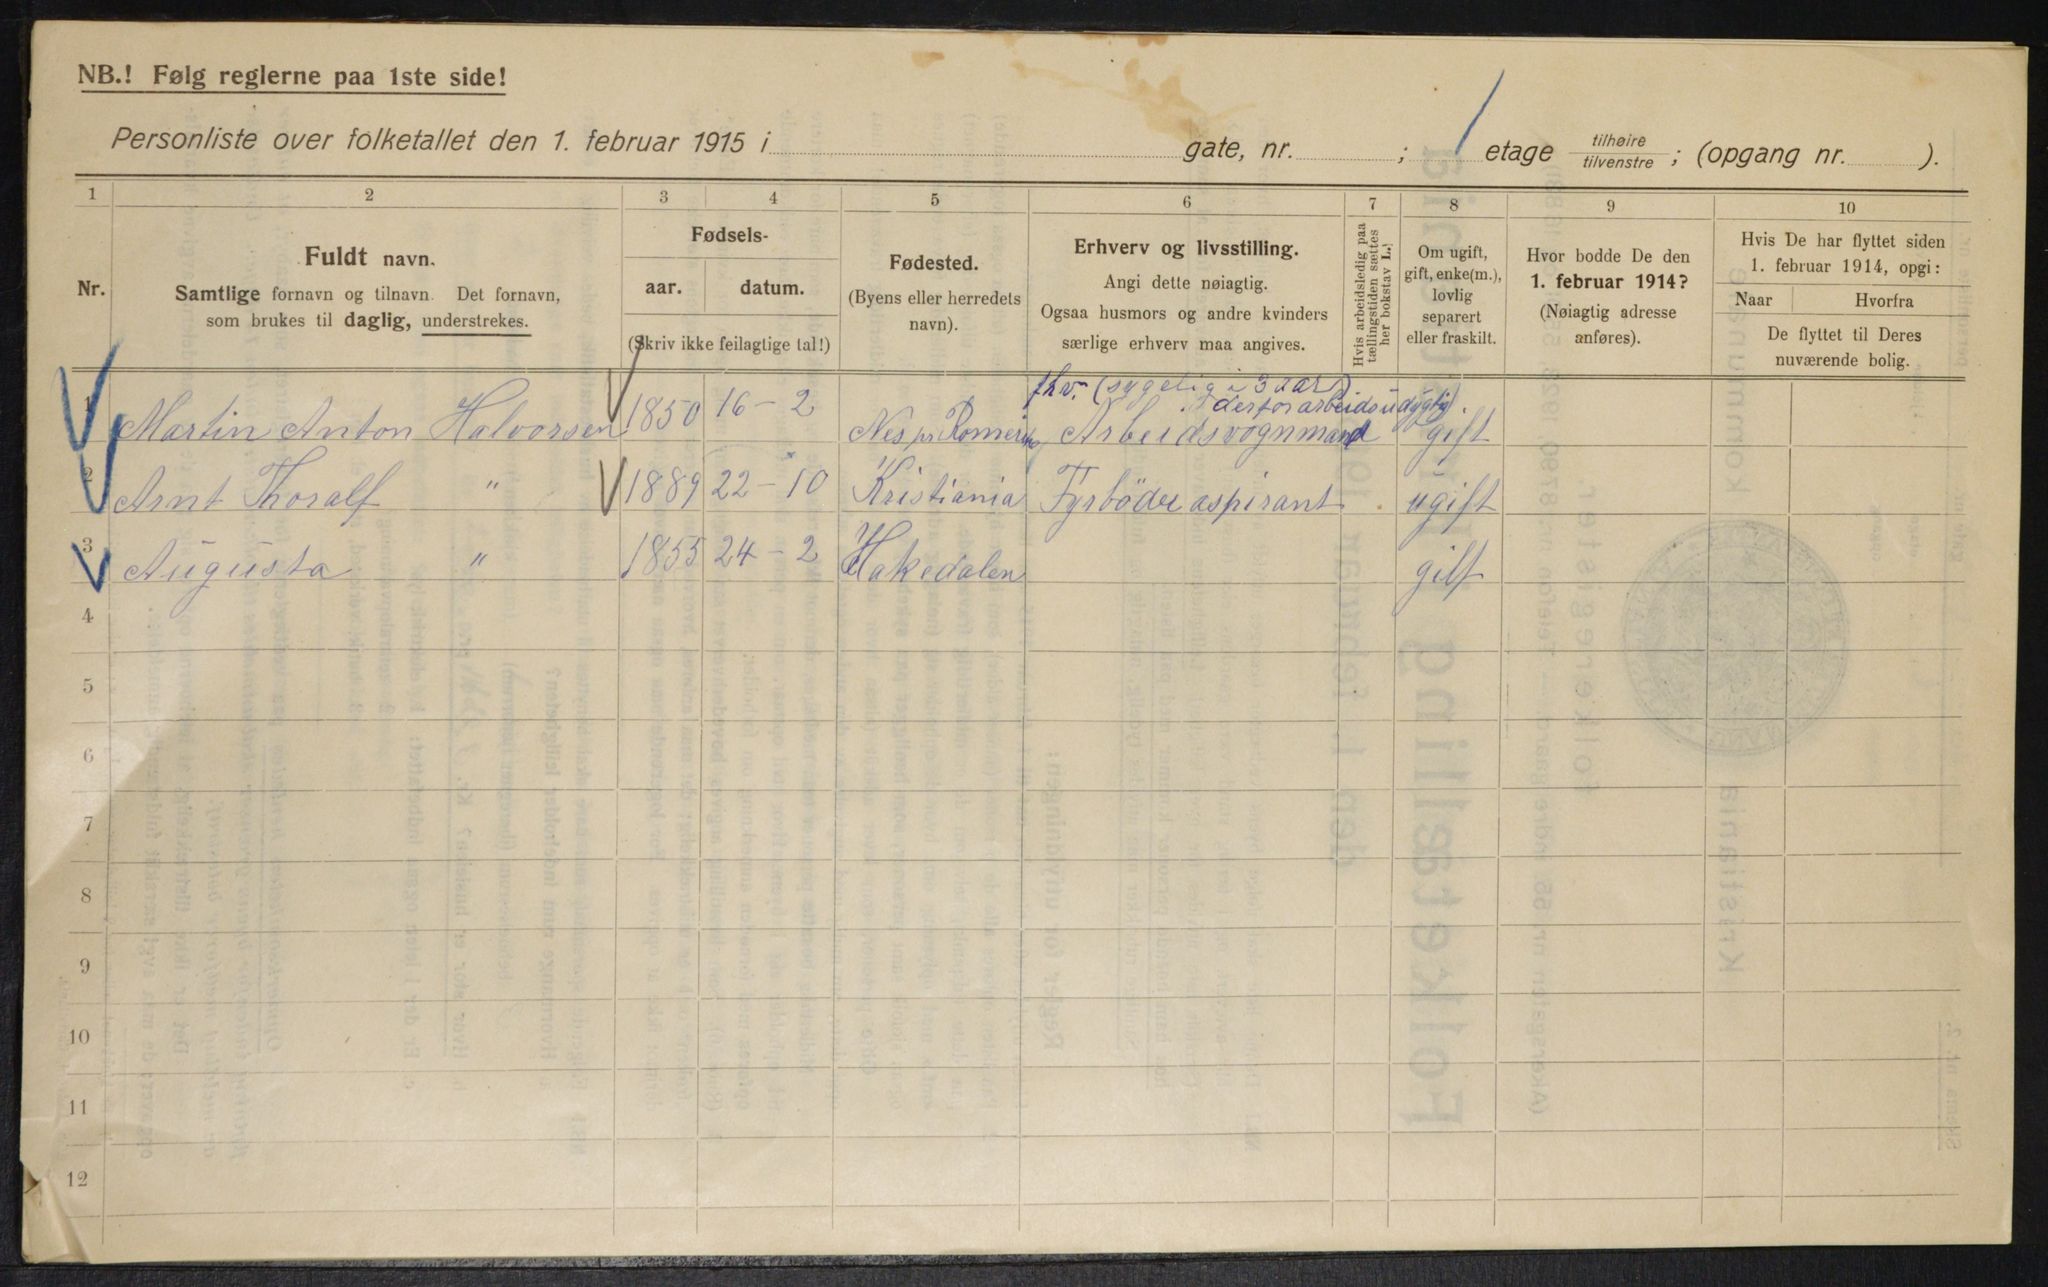 NB.! Følg reglerne paa 1ste side!
Personliste over folketallet den 1. februar 1915 i gate, nr. ; 1 etage tilhøire tilvenstre ; (opgang nr. ).
1 2 3 4 5 6 7 8 9 10
Nr.
Fuldt navn.
Samtlige fornavn og tilnavn. Det fornavn,
som brukes til daglig, understrekes.
Fødsels-
aar. datum.
(Skriv ikke feilagtige tal!)
Fødested.
(Byens eller herredets
navn).
Erhverv og livsstilling.
Angi dette nøiagtig.
Ogsaa husmors og andre kvinders
særlige erhverv maa angives.
Hvis arbeidsledig paa
tællingstiden sættes
her bokstav L.!
Om ugift,
gift, enke(m.),
lovlig
separert
eller fraskilt.
Hvor bodde De den
1. februar 1914?
(Nøiagtig adresse
anføres).
Hvis De har flyttet siden
1. februar 1914, opgi:
Naar Hvorfra
De flyttet til Deres
nuværende bolig.
fhv. (sygelig i 3 aar)
derfor arbeidsudygtig.
1 Martin Anton Halvorsen 1850 16 - 2 Nes pr Romerike Arbeidsvognmand gift
2 Arnt Thoralf " 1889 22 - 10 Kristiania Fyrböder aspirant ugift
3 Augusta " 1855 24 - 2 Hakedalen gift
4
5
6
7
8
9
10
11
12